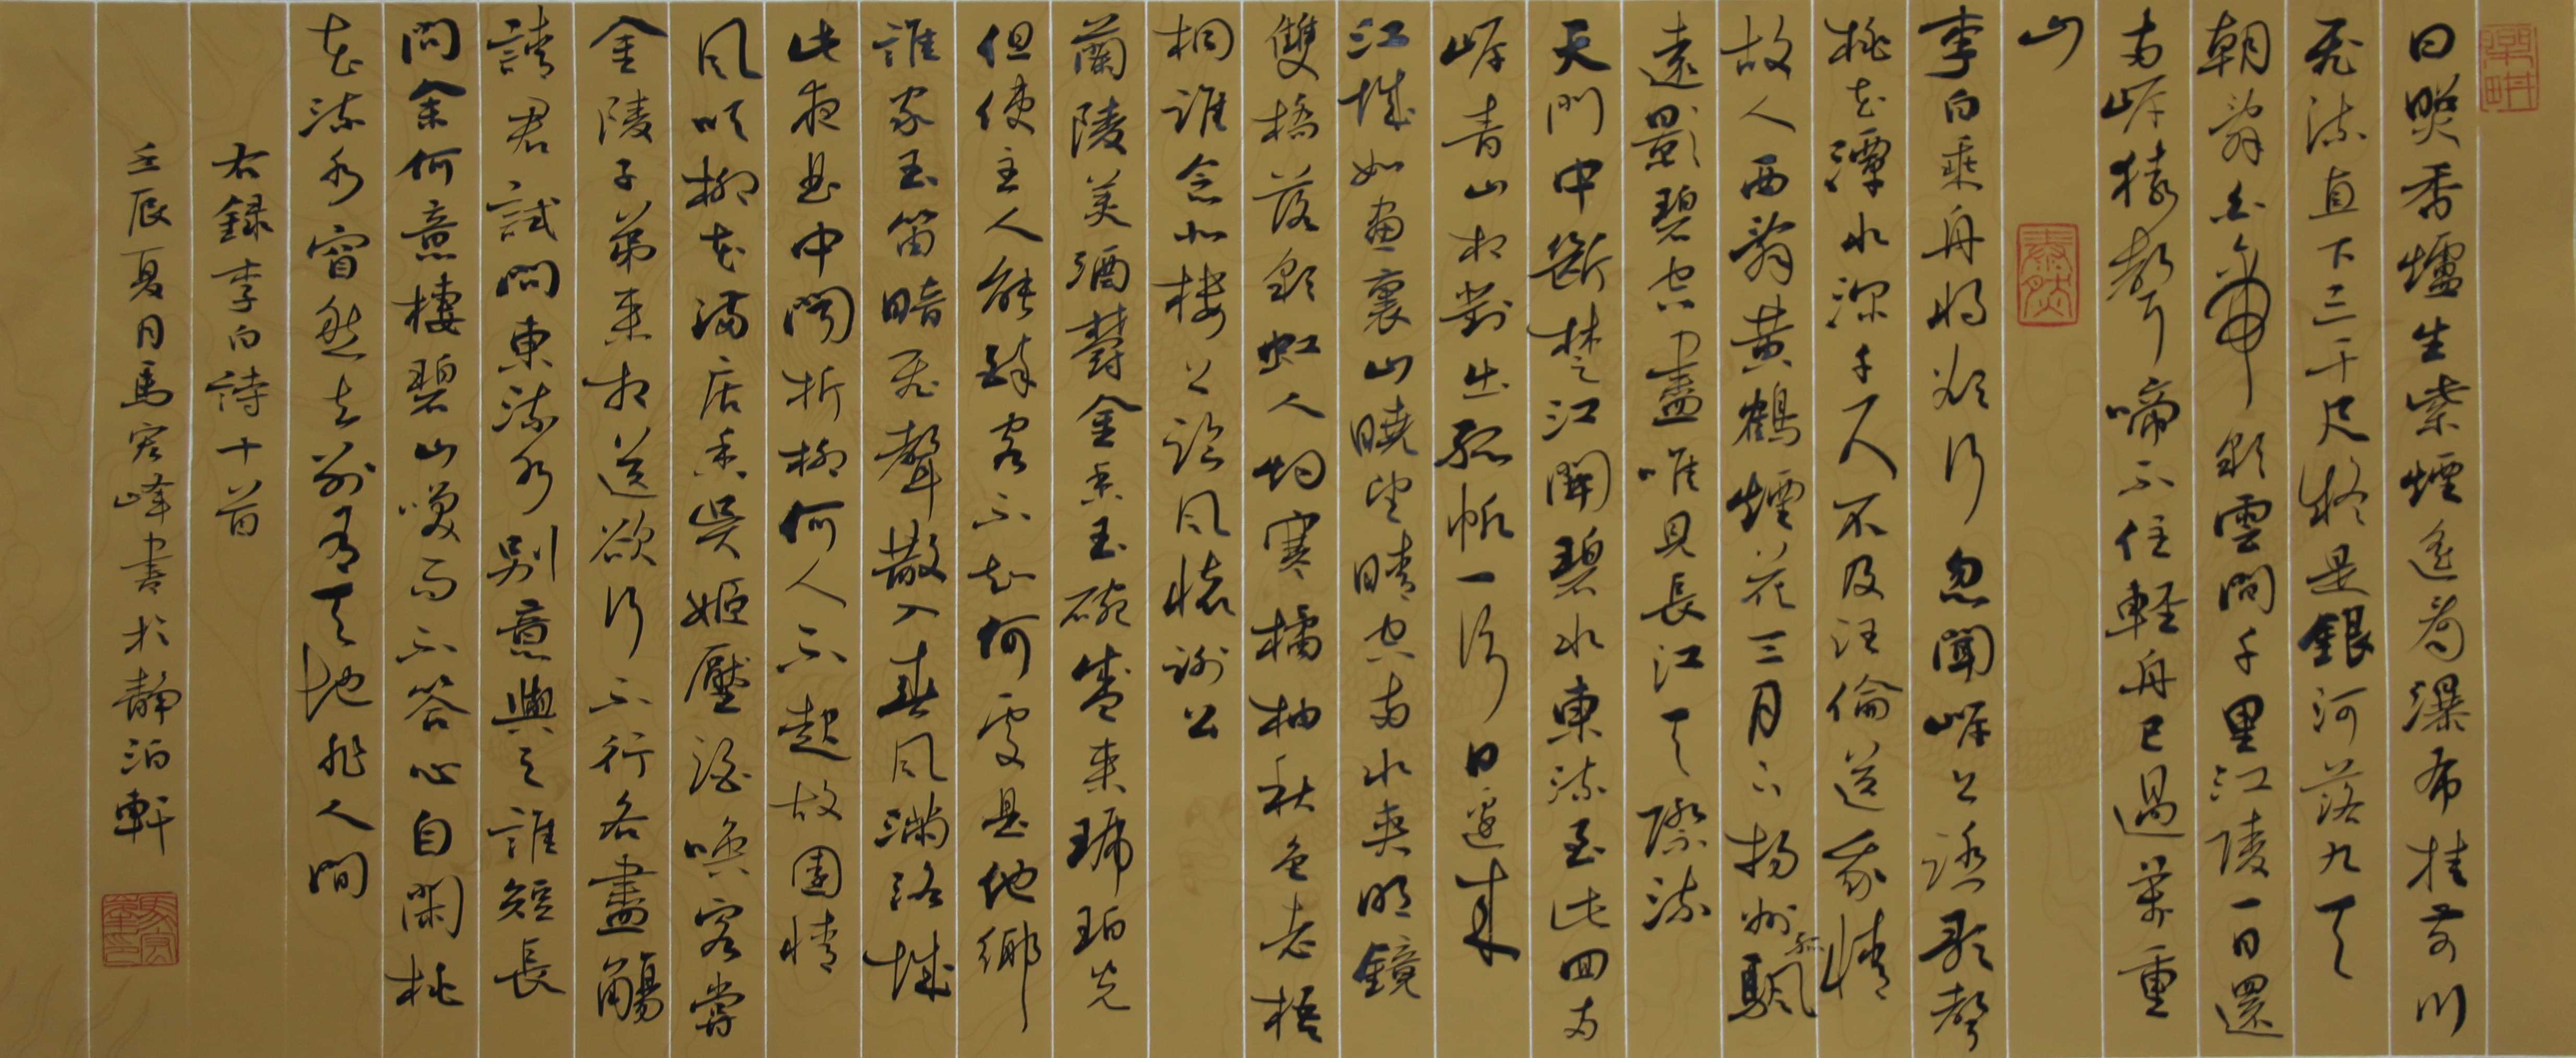 日照香爐生紫煙遙看瀑布挂前川
飛流直下三千尺疑是銀河落九天
朝辞白帝彩雲間千里江陵一日還
两岸猿聲啼不住輕舟已過萬重
山
李白乘舟将欲行忽聞岸上踏歌聲
桃花潭水深千尺不及汪倫送我情
故人西辞黄鶴煙花三月下揚州孤颿
遠影碧空盡唯見長江天際流
天門中斷楚江開碧水東流至此回两
岸青山相對出孤帆一片日邊来
江城如畫裏山曉望晴空两水夾明鏡
雙橋落彩虹人烟寒橘柚秋色老梧
桐誰念北樓上臨風懷謝公
蘭陵美酒鬱金香玉碗盛来琥珀光
但使主人能醉客不知何處是他鄉
誰家玉笛暗飛聲散入春風滿洛城
此夜曲中聞折柳何人不起故園情
風吹柳花满店香吳姬壓酒喚客嘗
金陵子弟来相送欲行不行各盡觴
請君試問東流水別意與之誰短長
問余何意棲碧山笑而不答心自閑桃
花流水窅然去別有天地非人間
右録李白詩十首
壬辰夏月馬宏峰書於靜泊軒